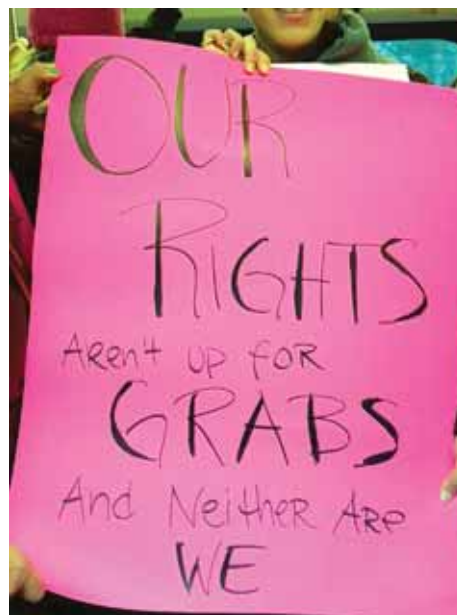 OUR
RIGHTS
AREn't UP FOR
GRABS
And NEITHER ARE
WE